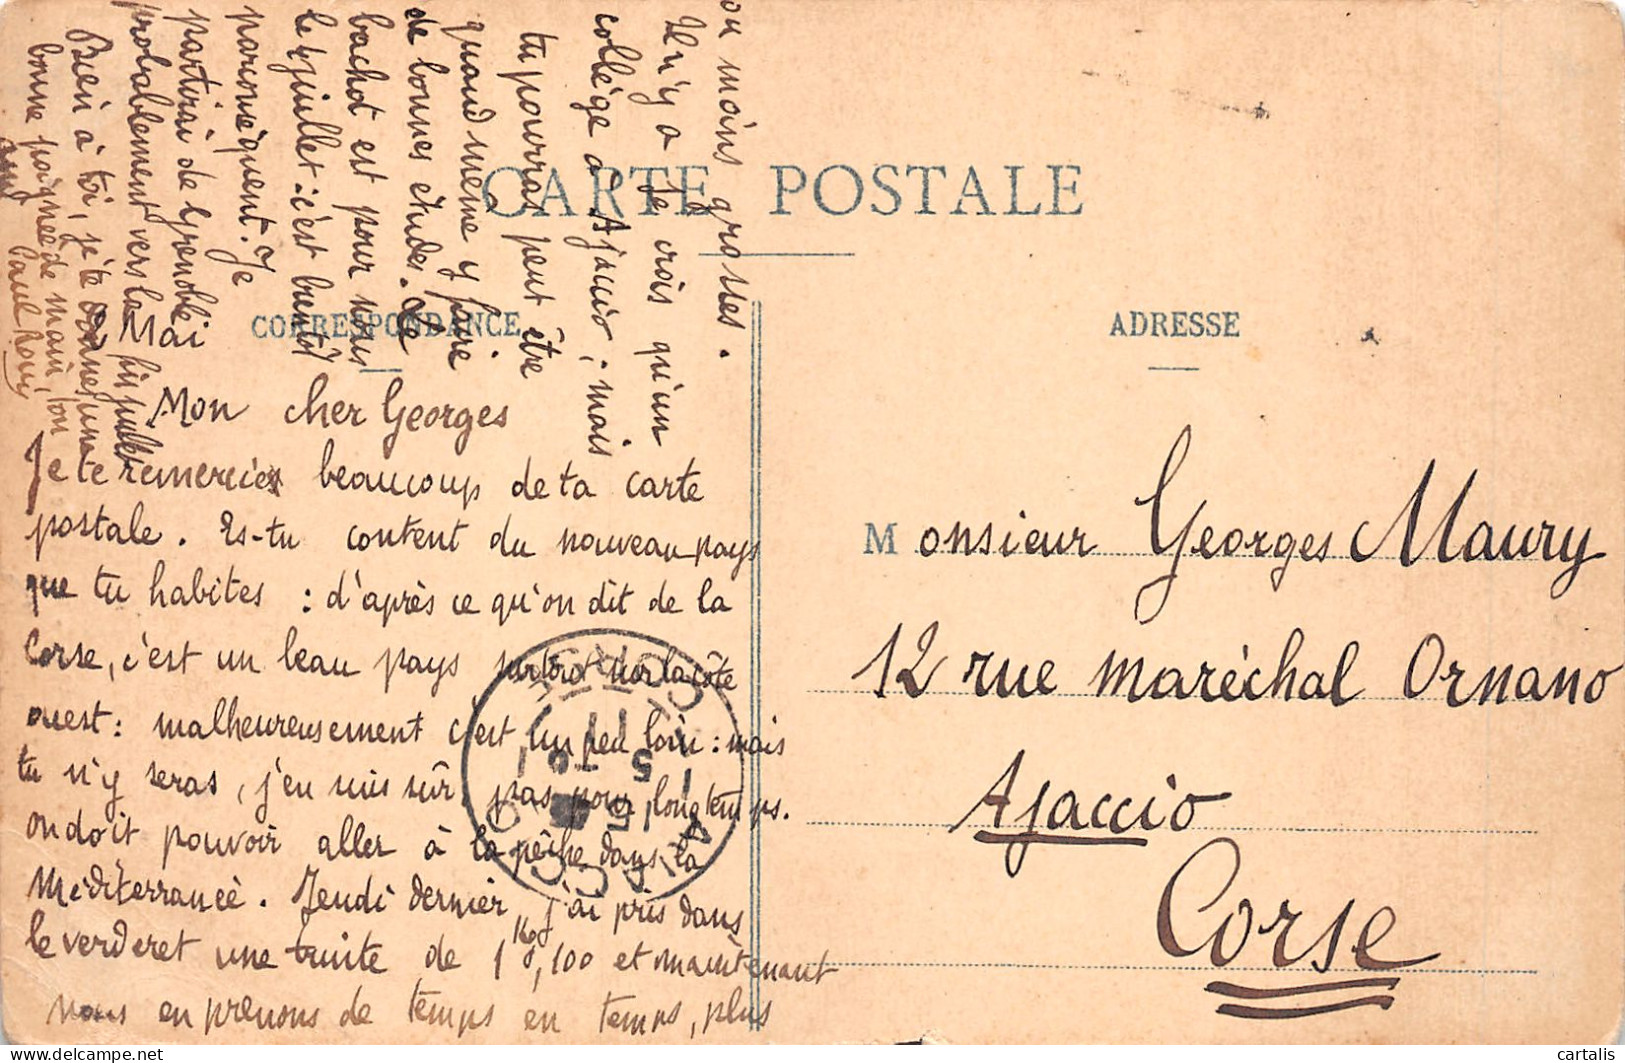 CARTE POSTALE
CORRESPONDANCE
ADRESSE
2 Mai
Mon cher Georges
Je te remercie beaucoup de ta carte
postale. Es-tu content du nouveau pays
que tu habites : d'après ce qu'on dit de la
Corse, c'est un beau pays surtout sur la côte
ouest : malheureusement c'est un peu loin : mais
tu n'y seras, j'en suis sûr, pas pour longtemps.
on doit pouvoir aller à la pêche dans la
Méditerranée. Jeudi dernier j'ai pris dans
le verderet une truite de 1kg,100 et maintenant
nous en prenons de temps en temps, plus
ou moins grosses.
Il n'y a je crois qu'un
collége à Ajaccio ; mais
tu pourras peut être
quand même y faire
de bonnes études. Le
bachot est pour nous
le juillet : c'est bientôt
par conséquent. Je
partirai de Grenoble
probablement vers la
Bien à toi, je te donne une
bonne poignée de main, ton
ami Paul
Monsieur Georges Maury
12 rue maréchal Ornano
Ajaccio
Corse
CORSE
AJACCIO
cartalis